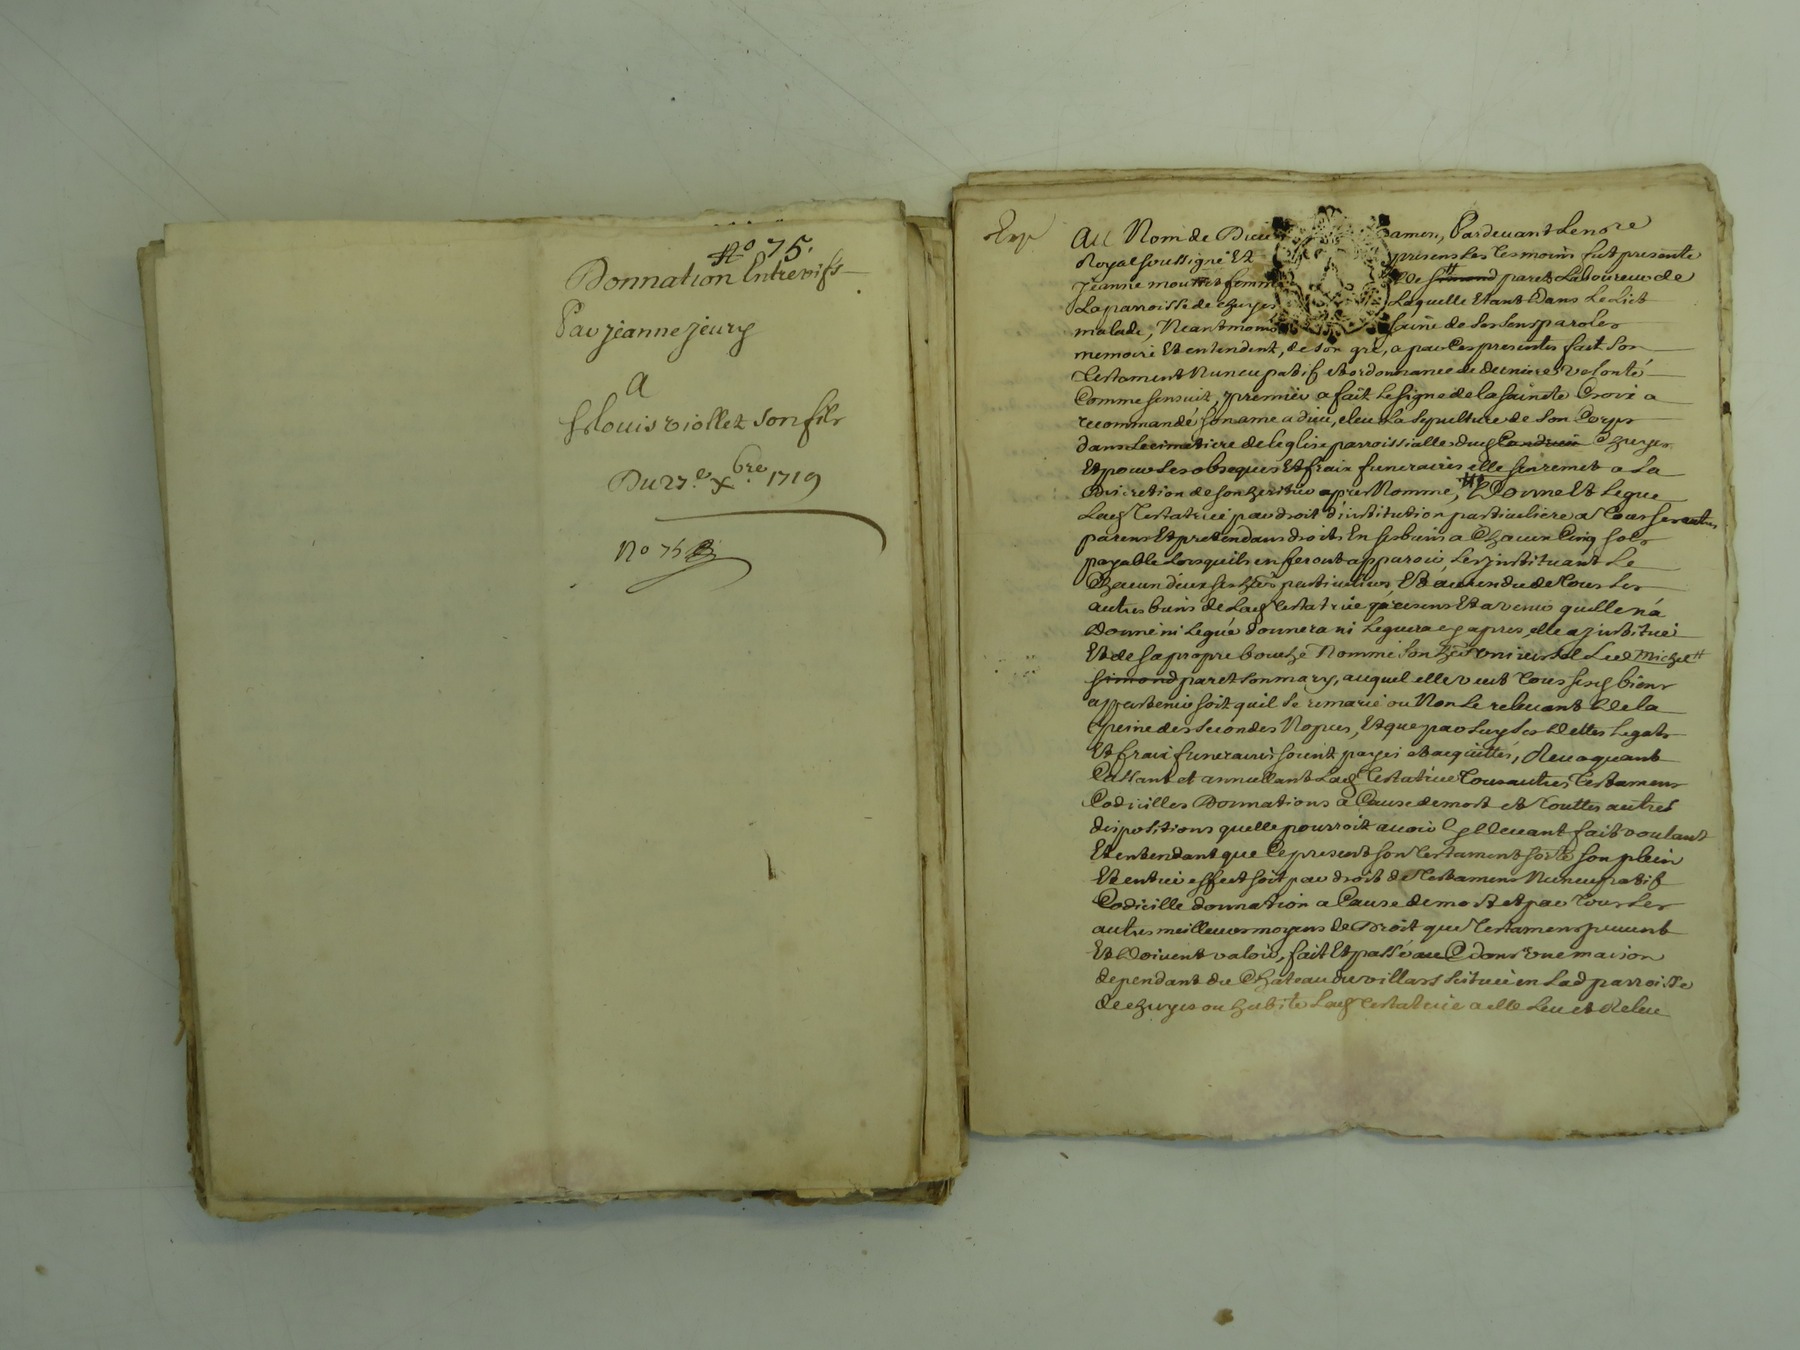 No 75.
Donnation Entrevifs
Par jeanne jeury
A
St louis viollet son fils
Du 27e Xbre 1719
No 75
Exp
Au Nom de Dieu amen, Pardevant Le nore
Royal soussigné Et presens Les tesmoins fut presente
jeanne mouttet femme De simond paret Laboureur de
La parroisse de chuyes Laquelle Etant Dans Le Lict
malade, Neantmoins saine de ses sens paroles
memoire Et entendent, de son gré, a par Ces presentes fait son
testament Nuncupatif et ordonnance de derniere volonté
Comme sensuit, premier a fait Le signe de la sainte Croix a
recommandé son ame a dieu, eleu La sepulture de son Corps
dans Le cimetiere de leglise parroissialle dud Chuyes
Et pour Les obseques Et fraix funeraires elle sen remet a La
Discretion de son heritier apres Nommé, Donne Et Legue
Lad Testatrice par droit dinstitution particuliere a Tous ses autres
parens Et pretendans droits En ses biens a Chacun Cinq sols
payable Lorsquils en feront apparoir, Les jnstituant Le
Chacun deux ses hers particuliers, Et au rendu de Tous Les
autres biens de Lad testatrice presens Et a venir quelle n'a
Donné ni Legué donnera ni Leguera cy apres, elle a jnstitué
Et de sa propre bouche Nommé son her universel Led Michel
simond paret son mary, auquel elle veut Tous sesd biens
appartenir soit quil se remarie ou Non Le relevant De la
peine des secondes Nopces, Et que par Luy ses Dettes Legats
Et fraix funeraires soient payés et acquittés, Revoquant
Cassant et annullant Lad Testatrice Tous autres Testamens
Codicilles Donnations a Cause de mort et Touttes autres
dispositions quelle pourroit avoir Cy Devant fait voulant
Et entendant que Ce present son Testament sorte son plein
Et entier effect soit par droit de Testament Nuncupatif
Codicille donnation a Cause de mort et par Tous Les
autres meilleurs moyens De Droit que Testamens peuvent
Et Doivent valoir, fait Et passé dans une maison
dependant du Chateau du villars scituée en Lad parroisse
de chuyes ou habite Lad testatrice a elle Leu et Releu